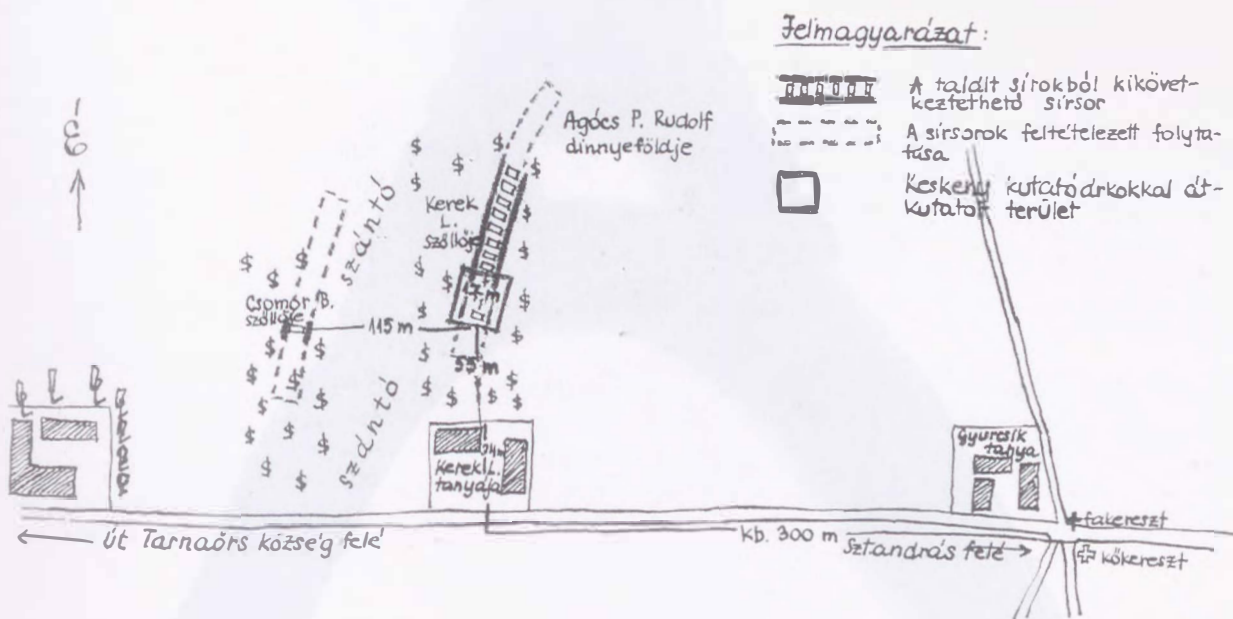 Jelmagyarázat:
A talált sírokból kikövet-
keztethető sírsor
A sírsorok feltételezett folyta-
tása
Keskeny kutatóárkokkal át-
kutatott terület
É
Agócs P. Rudolf
dinnyeföldje
Kerek
L.
szőllője
szántó
Csomór B.
szőllője
115 m
17 m
55 m
szántó
Kerek L.
tanyája
24 m
Gyurcsik
tanya
fakereszt
Út Tarnaörs község felé
kb. 300 m
Sztandrás felé
kőkereszt